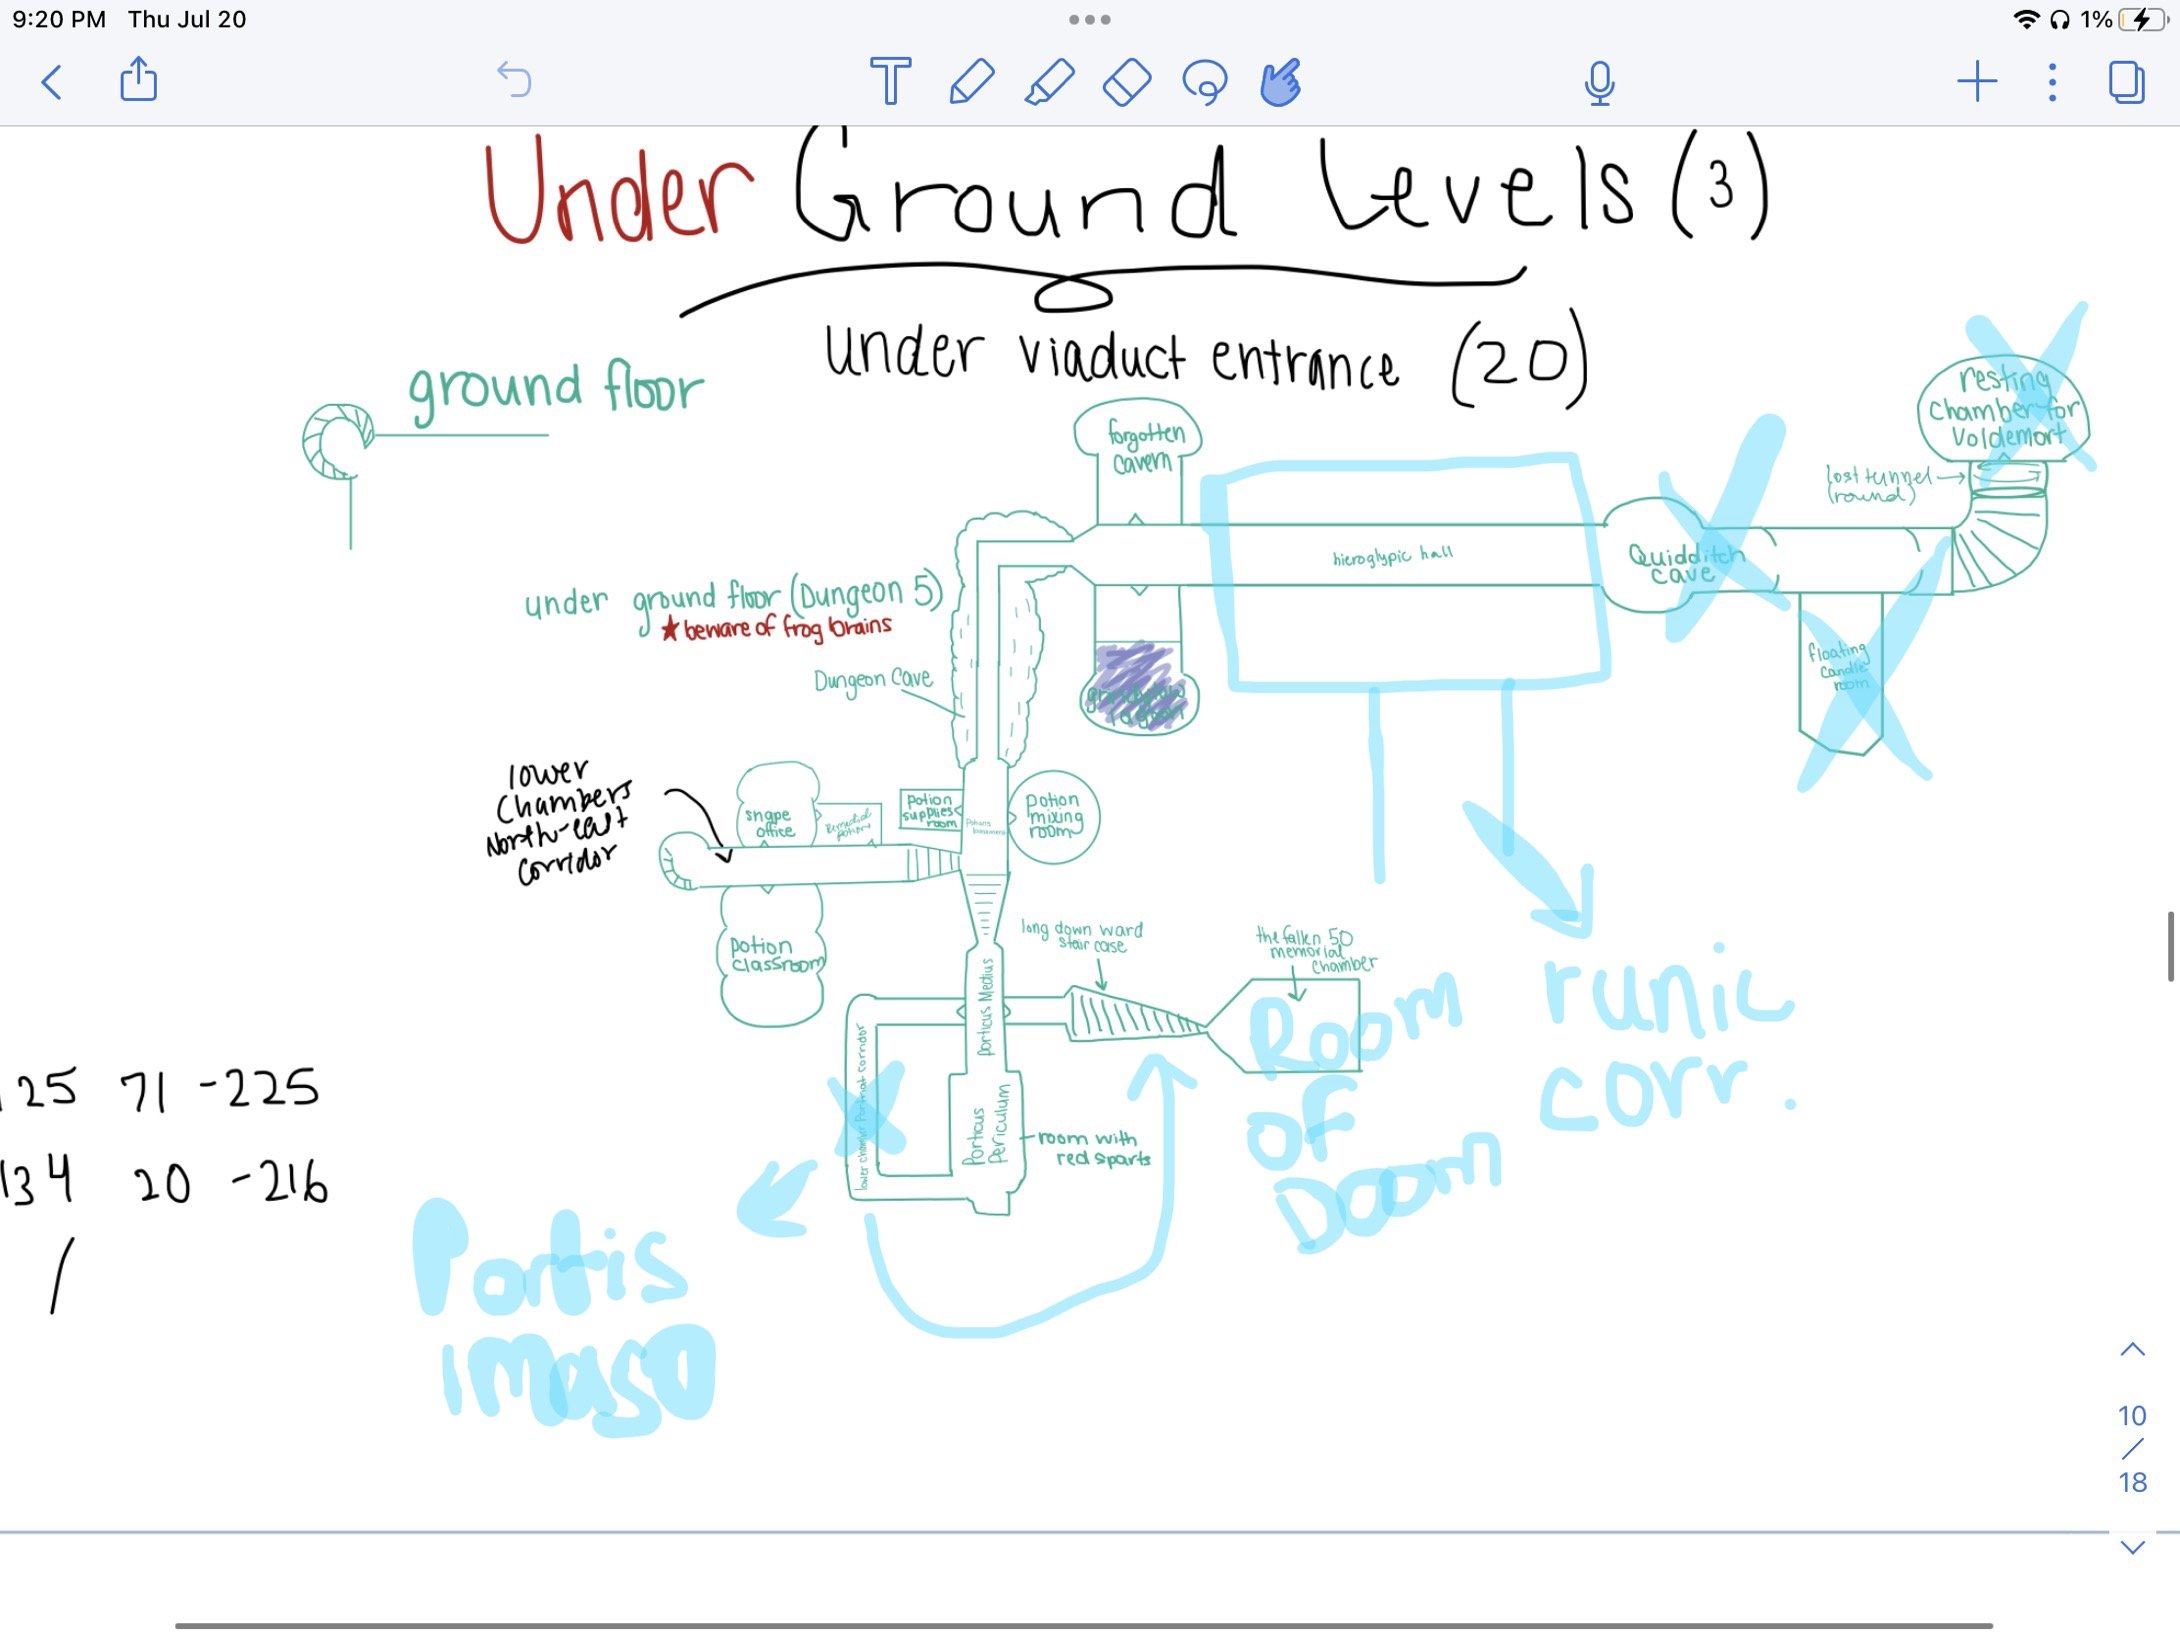 9:20 PM Thu Jul 20
1%
T
Under Ground Levels (3)
under viaduct entrance (20)
ground floor
resting
chamber for
Voldemort
lost tunnel
(round)
forgotten
cavern
hieroglypic hall
Quidditch
cave
floating
candle
room
under ground floor (Dungeon 5)
★ beware of frog brains
Dungeon Cave
lagoon
lower
Chambers
North-east
Corridor
snape
office
Remedial
potion
potion
supplies
room
Potions
potion
mixing
room
potion
classroom
long down ward
stair case
the fallen 50
memorial
chamber
Porticus Medius
lower chamber Portrait corridor
Porticus
Periculum
room with
red sparts
Room
of
Doom
runic
corr.
Portis
imago
125 71 -225
134 20 -216
/
10
/
18